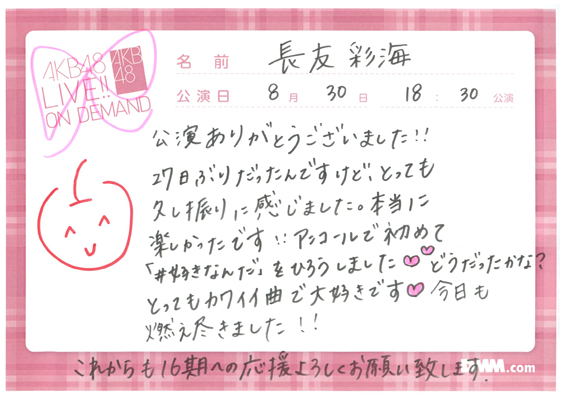 AKB48
LIVE!!
ON DEMAND
AKB
48
名前 長友彩海
公演日 8月30日 18:30公演
公演ありがとうございました!!
27日ぶりだったんですけど、とっても
久し振りに感じました。本当に
楽しかったです!!アンコールで初めて
「#好きなんだ」をひろうしました♡♡どうだったかな?
とってもカワイイ曲で大好きです♡今日も
燃え尽きました!!
これからも16期への応援よろしくお願い致します.
.com